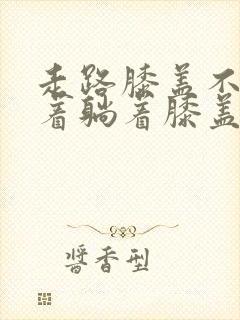 走路膝盖不
着躺着膝盖
酱香型